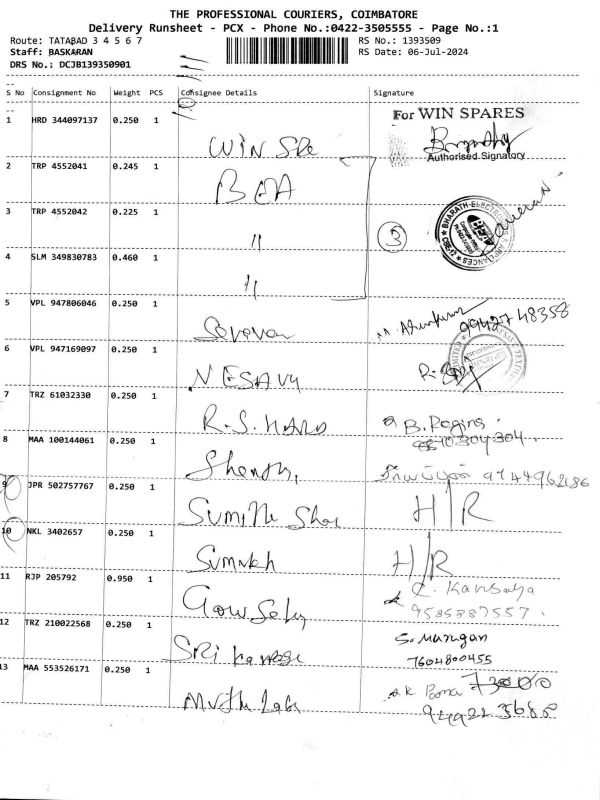 THE PROFESSIONAL COURIERS, COIMBATORE
Delivery Runsheet - PCX - Phone No.:0422-3505555 - Page No.:1
Route: TATABAD 3 4 5 6 7 RS No.: 1393509
Staff: BASKARAN RS Date: 06-Jul-2024
DRS No.: DCJB139350901
S No Consignment No Weight PCS Consignee Details Signature
For WIN SPARES
1 HRD 344097137 0.250 1 WIN
Authorised Signatory
2 TRP 4552041 0.245 1
3 TRP 4552042 0.225 1 " 3
4 SLM 349830783 0.460 1 "
5 VPL 947806046 0.250 1 99427 48358
6 VPL 947169097 0.250 1 NESAVU
7 TRZ 61032330 0.250 1 R.S. B. Regina
8 MAA 100144061 0.250 1
9 JPR 502757767 0.250 1 H/R
10 NKL 3402657 0.250 1 Sumukh H/R
11 RJP 205792 0.950 1
9585887557
12 TRZ 210022568 0.250 1 SRi S. Murugan
7604800455
13 MAA 553526171 0.250 1 Muthu Labs